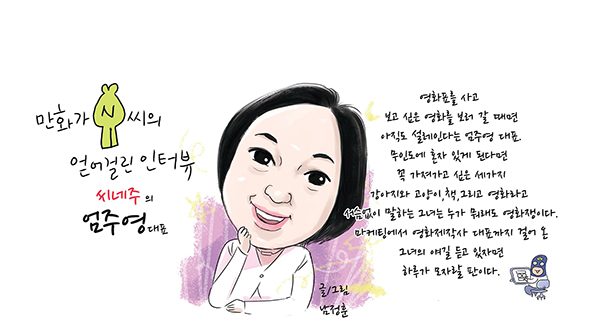 만화가 N 씨의
얻어걸린 인터뷰
씨네주의
엄주영 대표
영화표를 사고
보고 싶은 영화를 보러 갈 때면
아직도 설레인다는 엄주영 대표.
무인도에 혼자 있게 된다면
꼭 가져가고 싶은 세가지
강아지와 고양이, 책, 그리고 영화라고
서슴없이 말하는 그녀는 누가 뭐래도 영화쟁이다.
마케팅에서 영화제작사 대표까지 걸어 온
그녀의 얘길 듣고 있자면
하루가 모자랄 판이다.
글/그림
남정훈